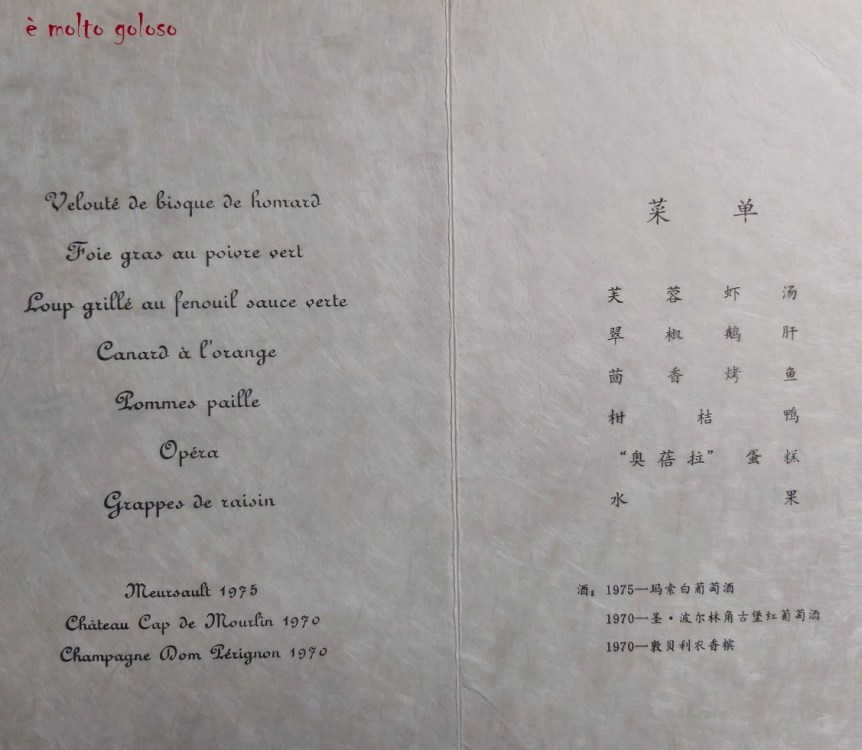 è molto goloso
Velouté de bisque de homard
Foie gras au poivre vert
Loup grillé au fenouil sauce verte
Canard à l'orange
Pommes paille
Opéra
Grappes de raisin
Meursault 1975
Château Cap de Mourlin 1970
Champagne Dom Pérignon 1970
菜单
芙蓉虾汤
翠椒鹅肝
茴香烤鱼
柑桔鸭
“奥蓓拉”蛋糕
水果
酒：1975—玛索白葡萄酒
1970—圣·波尔林角古堡红葡萄酒
1970—敦贝利农香槟